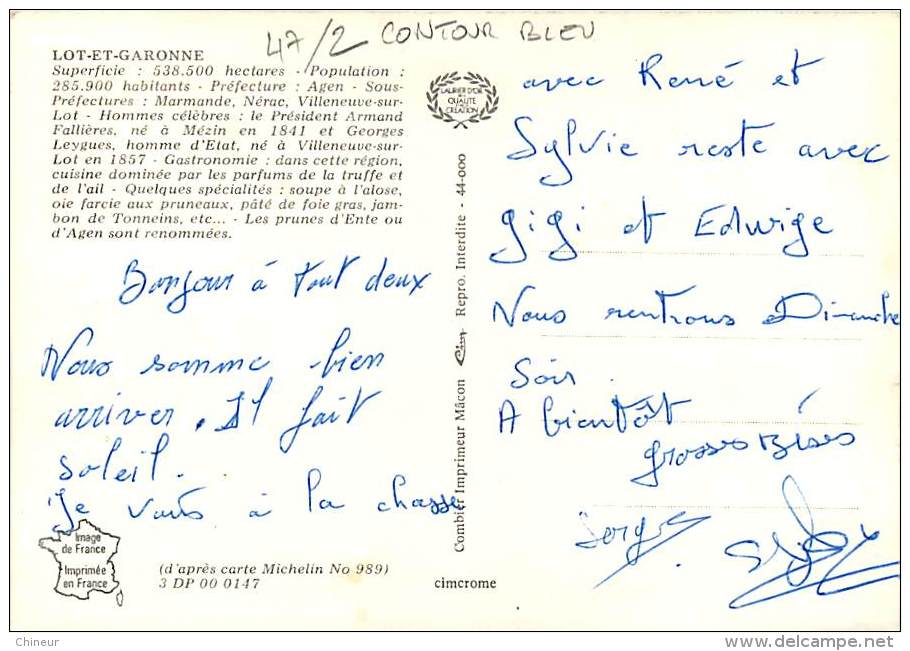 47/2 CONTOUR BLEU
LOT-ET-GARONNE
Superficie : 538.500 hectares - Population :
285.900 habitants - Préfecture : Agen - Sous-
Préfectures : Marmande, Nérac, Villeneuve-sur-
Lot - Hommes célèbres : le Président Armand
Fallières, né à Mézin en 1841 et Georges
Leygues, homme d'Etat, né à Villeneuve-sur-
Lot en 1857 - Gastronomie : dans cette région,
cuisine dominée par les parfums de la truffe et
de l'ail - Quelques spécialités : soupe à l'alose,
oie farcie aux pruneaux, pâté de foie gras, jam-
bon de Tonneins, etc... - Les prunes d'Ente ou
d'Agen sont renommées.
Bonjour à tout deux
Nous somme bien
arriver. Il fait
soleil.
Je vais à la chasse
Image
de France
Imprimée
en France
(d'après carte Michelin No 989)
3 DP 00 0147
cimcrome
Combier Imprimeur Mâcon Cim Repro. Interdite - 44-000
LAURIER D'OR
DE LA
QUALITÉ
CRÉATION
avec René et
Sylvie reste avec
gigi et Edwige
Nous rentrons Dimanche
Soir.
A bientôt
grosses Bises
Serge
Chineur
www.delcampe.net